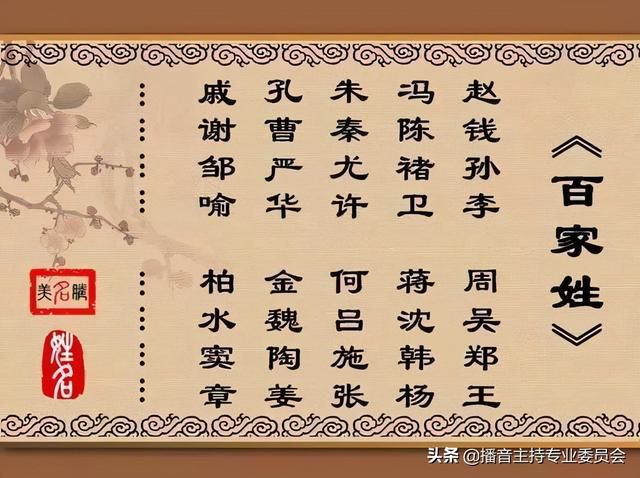 《百家姓》
赵钱孙李
周吴郑王
冯陈褚卫
蒋沈韩杨
朱秦尤许
何吕施张
孔曹严华
金魏陶姜
戚谢邹喻
柏水窦章
……
……
美名腾
姓名
头条 @播音主持专业委员会